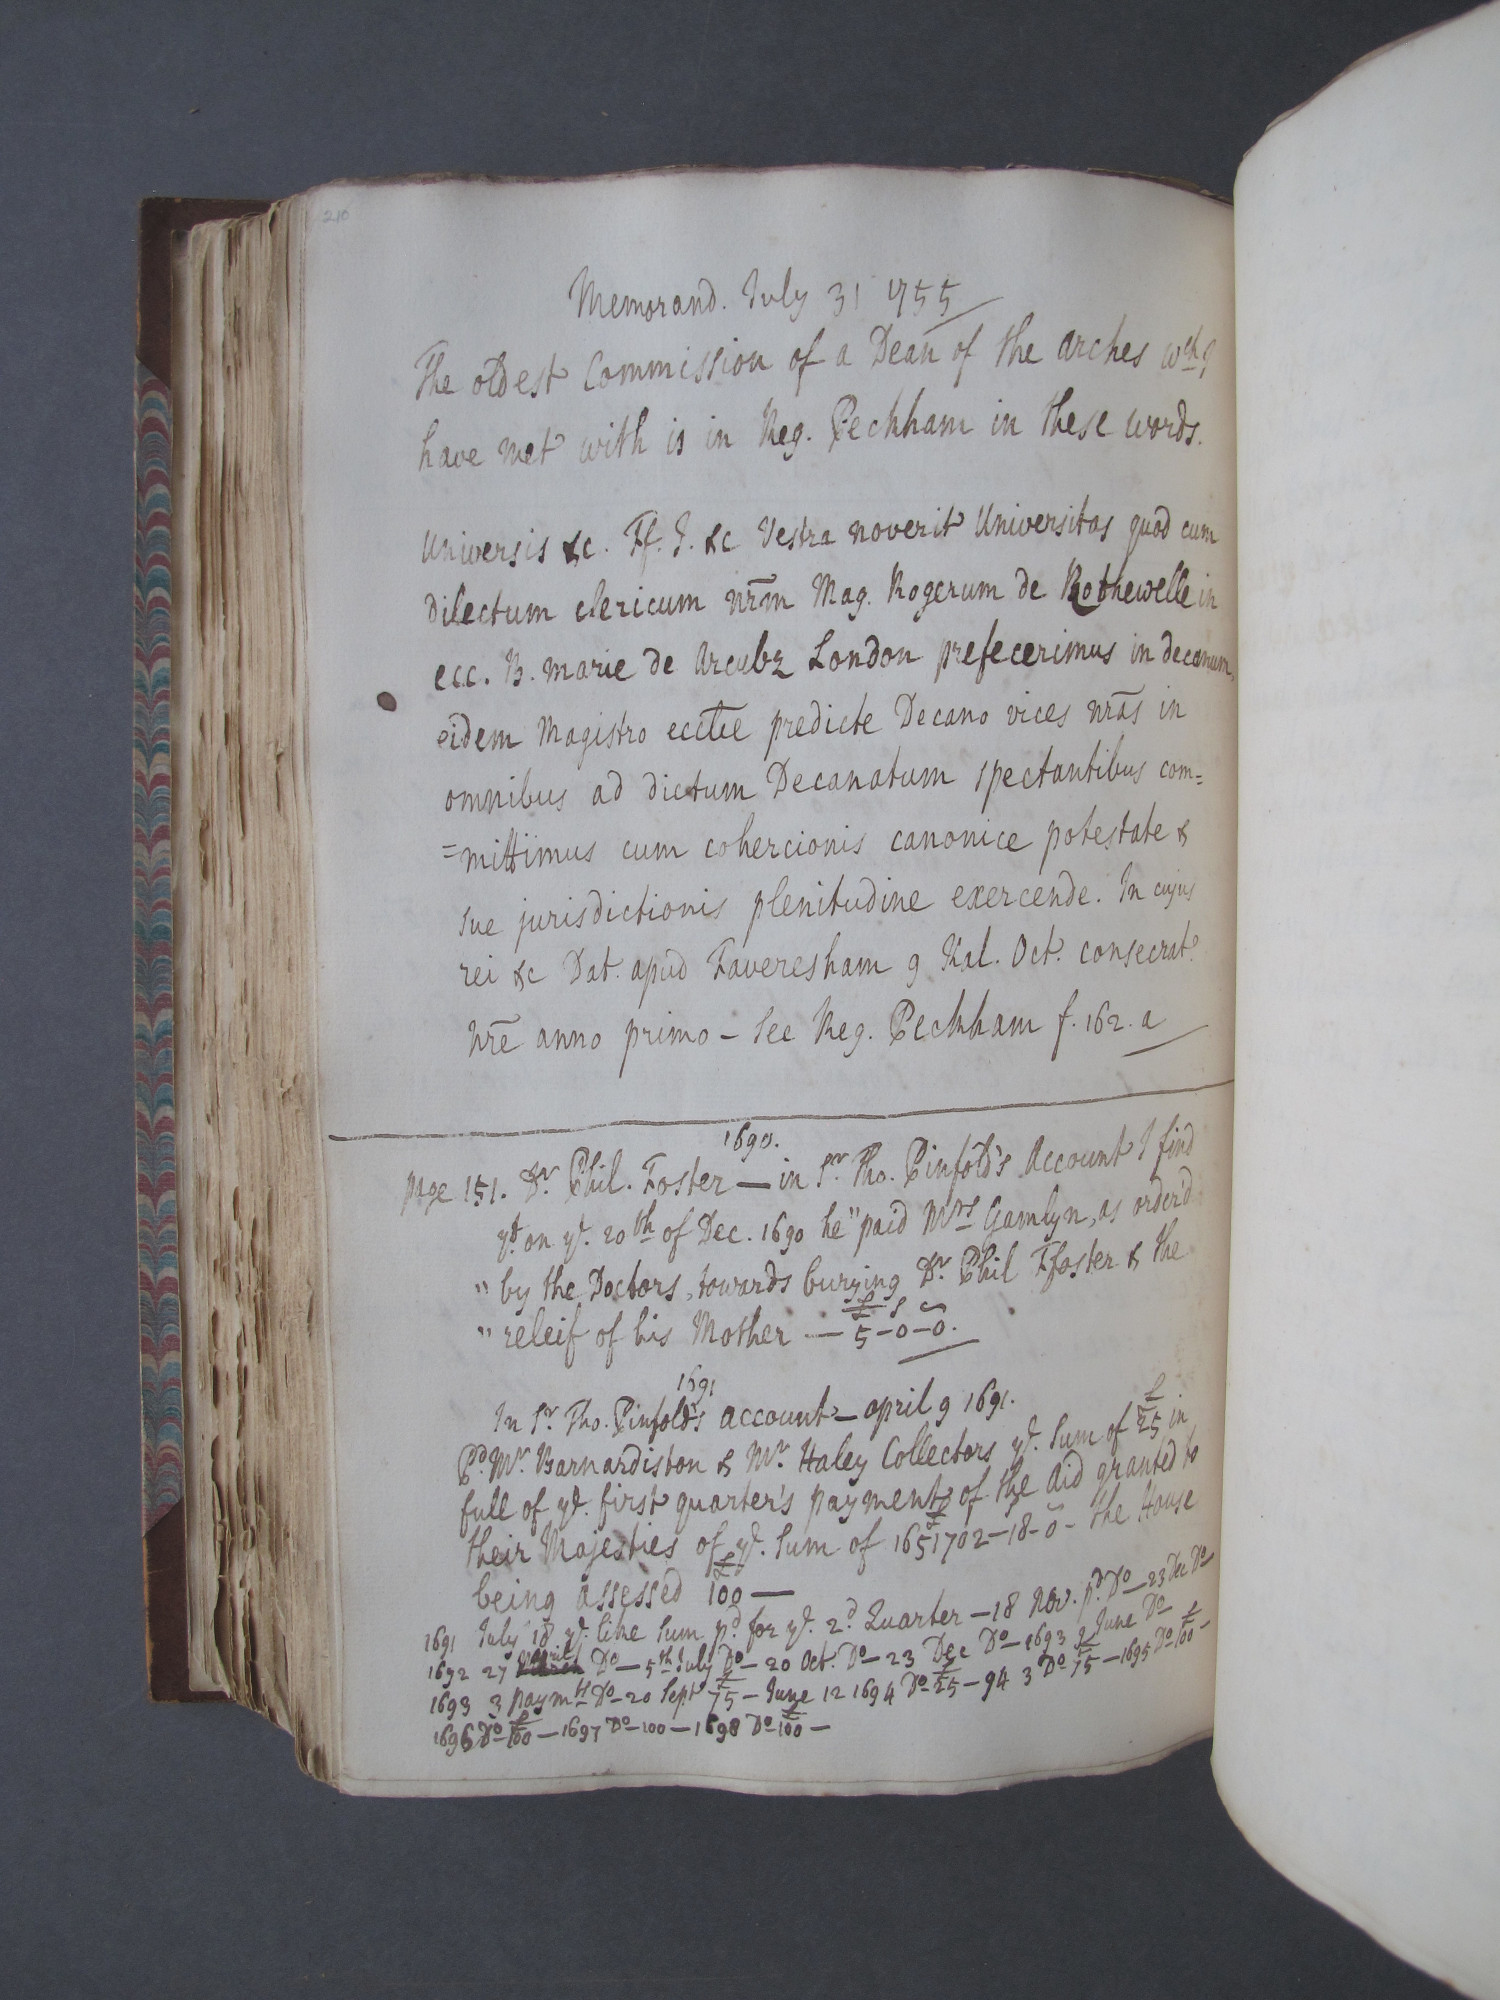 210
Memorand. July 31 1755
The oldest Commission of a Dean of the Arches wch I
have met with is in Reg. Peckham in these words.
Universis &c. Ff. J. &c Vestra noverit Universitas quod cum
dilectum clericum nr̄m Mag. Rogerum de Rothewelle in
ecc. B. Marie de Arcubz London prefecerimus in decanum,
eidem Magistro ecctie predicte Decano vices nr̄as in
omnibus ad dictum Decanatum spectantibus com=
=mittimus cum cohercionis canonice potestate &
sue jurisdictionis plenitudine exercende. In cujus
rei &c Dat. apud Faveresham 9 Kal. Oct. consecrat.
nr̄e anno primo – See Reg. Peckham f. 162. a
1690.
page 151. Dr. Phil. Foster — in Sr. Tho. Pinfold's Account I find
yt. on ye. 20th of Dec. 1690 he "paid Mrs Gamlyn, as order'd
" by the Doctors, towards burying Dr. Phil Ffoster & the
" releif of his Mother — £5 – 0s – 0d.
1691
In Sr. Tho. Pinfold's account – april 9 1691.
Pd. Mr. Barnardiston & Mr. Haley Collectors ye. Sum of £25 in
full of ye. first quarter's payment of the Aid granted to
their Majesties of ye. Sum of £1651702 – 18 – 0 – the House
being assessed £100 —
1691 July 18 ye. like Sum pd. for ye. 2d. Quarter – 18 Nov. pd. Do – 23 Dec Do
1692 27 April Do – 5th July Do – 20 Oct. Do – 23 Dec Do – 1693 9 June Do
1693 3 paymts Do – 20 Sept £75 – June 12 1694 Do £25 – 94 3 Do £75 – 1695 Do £100 –
1696 Do £100 – 1697 Do – 100 – 1698 Do £100 –